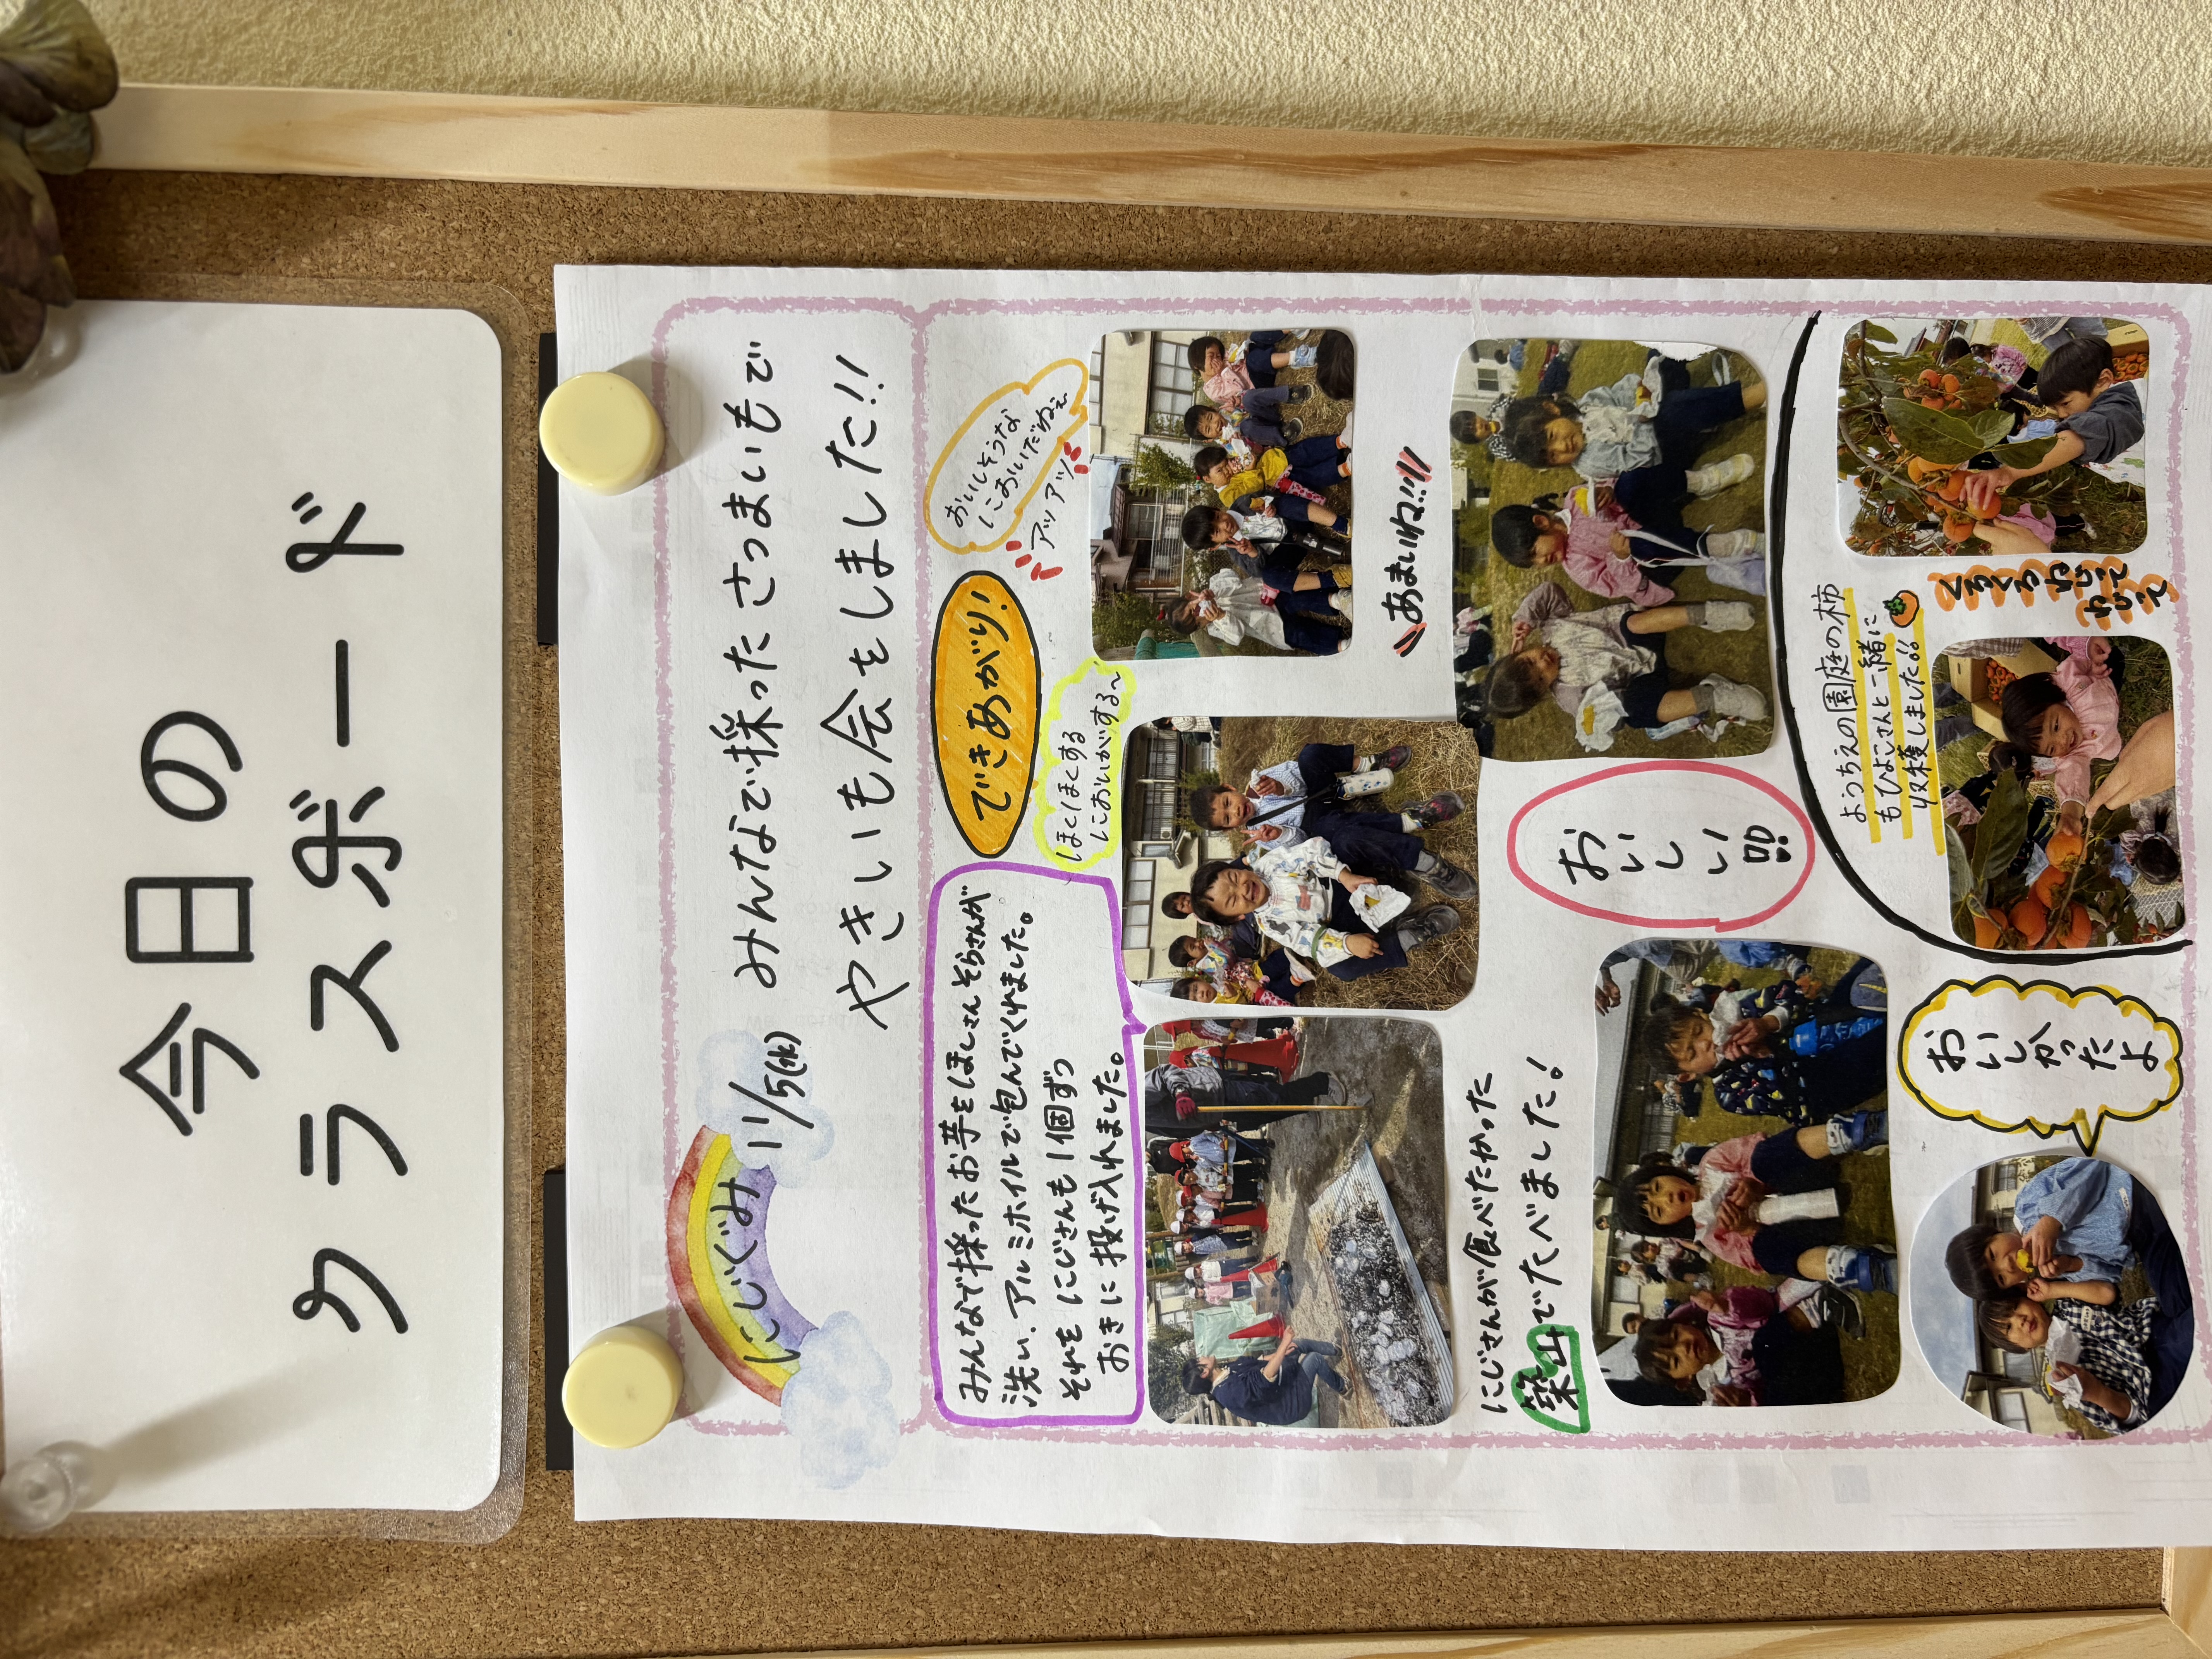 今日の
クラスボード
にじぐみ
11/5(水)
みんなで採ったさつまいもで
やきいも会をしました!!
みんなで採ったお芋をほしさんそらさんが
洗い、アルミホイルで包んでくれました。
それを にじさんも1個ずつ
おきに投げ入れました。
できあがり!
おいしそうな
におおいだねぇ
アツアツ
ほくほくする
においがする〜
あまいね!!!
にじさんが食べたかった
築山でたべました!
おいしい!!
ようちえの園庭の柿
もひよこさんと一緒に
収穫しました!!
くるくる
ねじって
ねじって
おい
しかっ
たよ